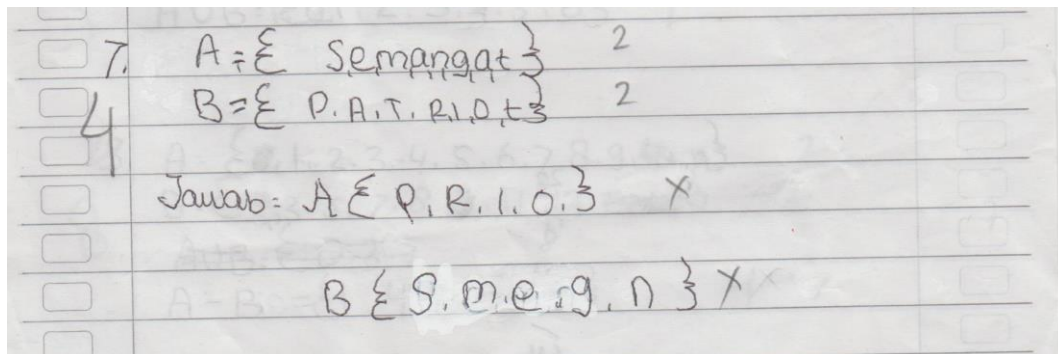 7. A = { S,e,m,a,n,g,a,t } 2
4 B = { P.A.T.R.I.O,t } 2
Jawab = A { P.R.I.O. } X
B { S.m.e.g.n } X